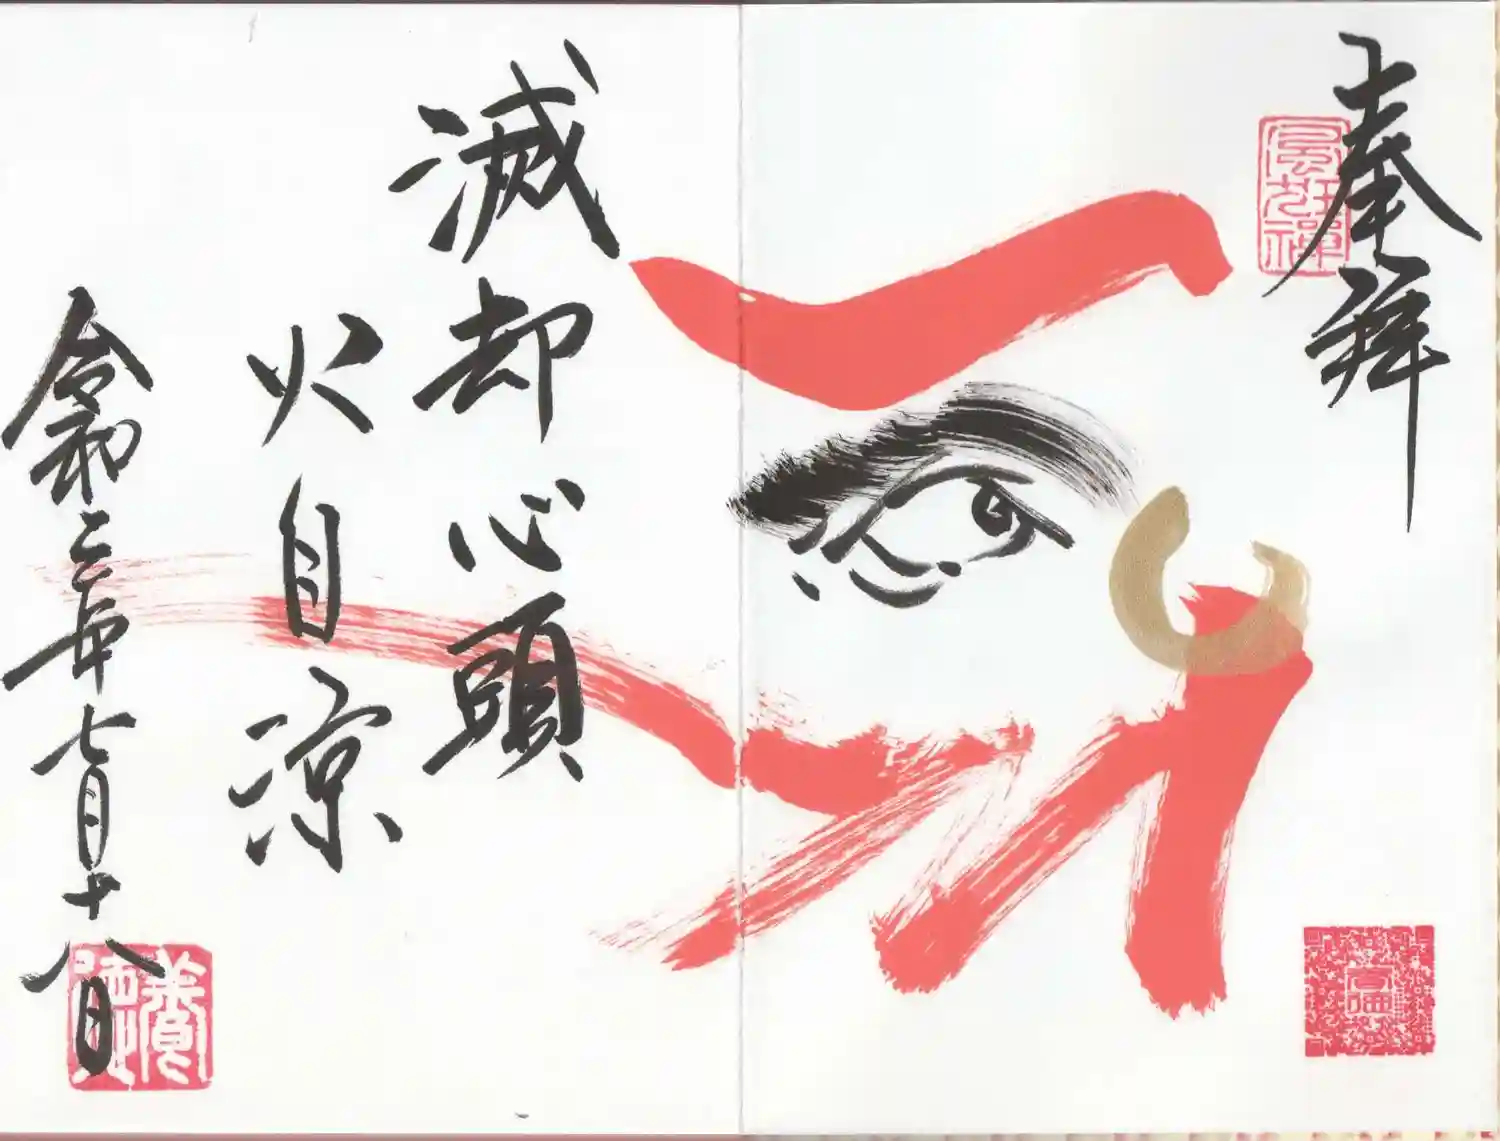 奉拝
滅却心頭
火自涼
令和二年七月十八日
養徳